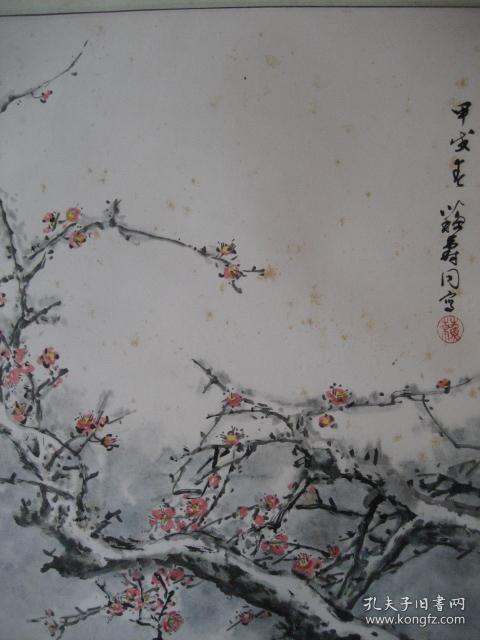 甲寅春
寿同写
孔夫子旧书网
www.kongfz.com